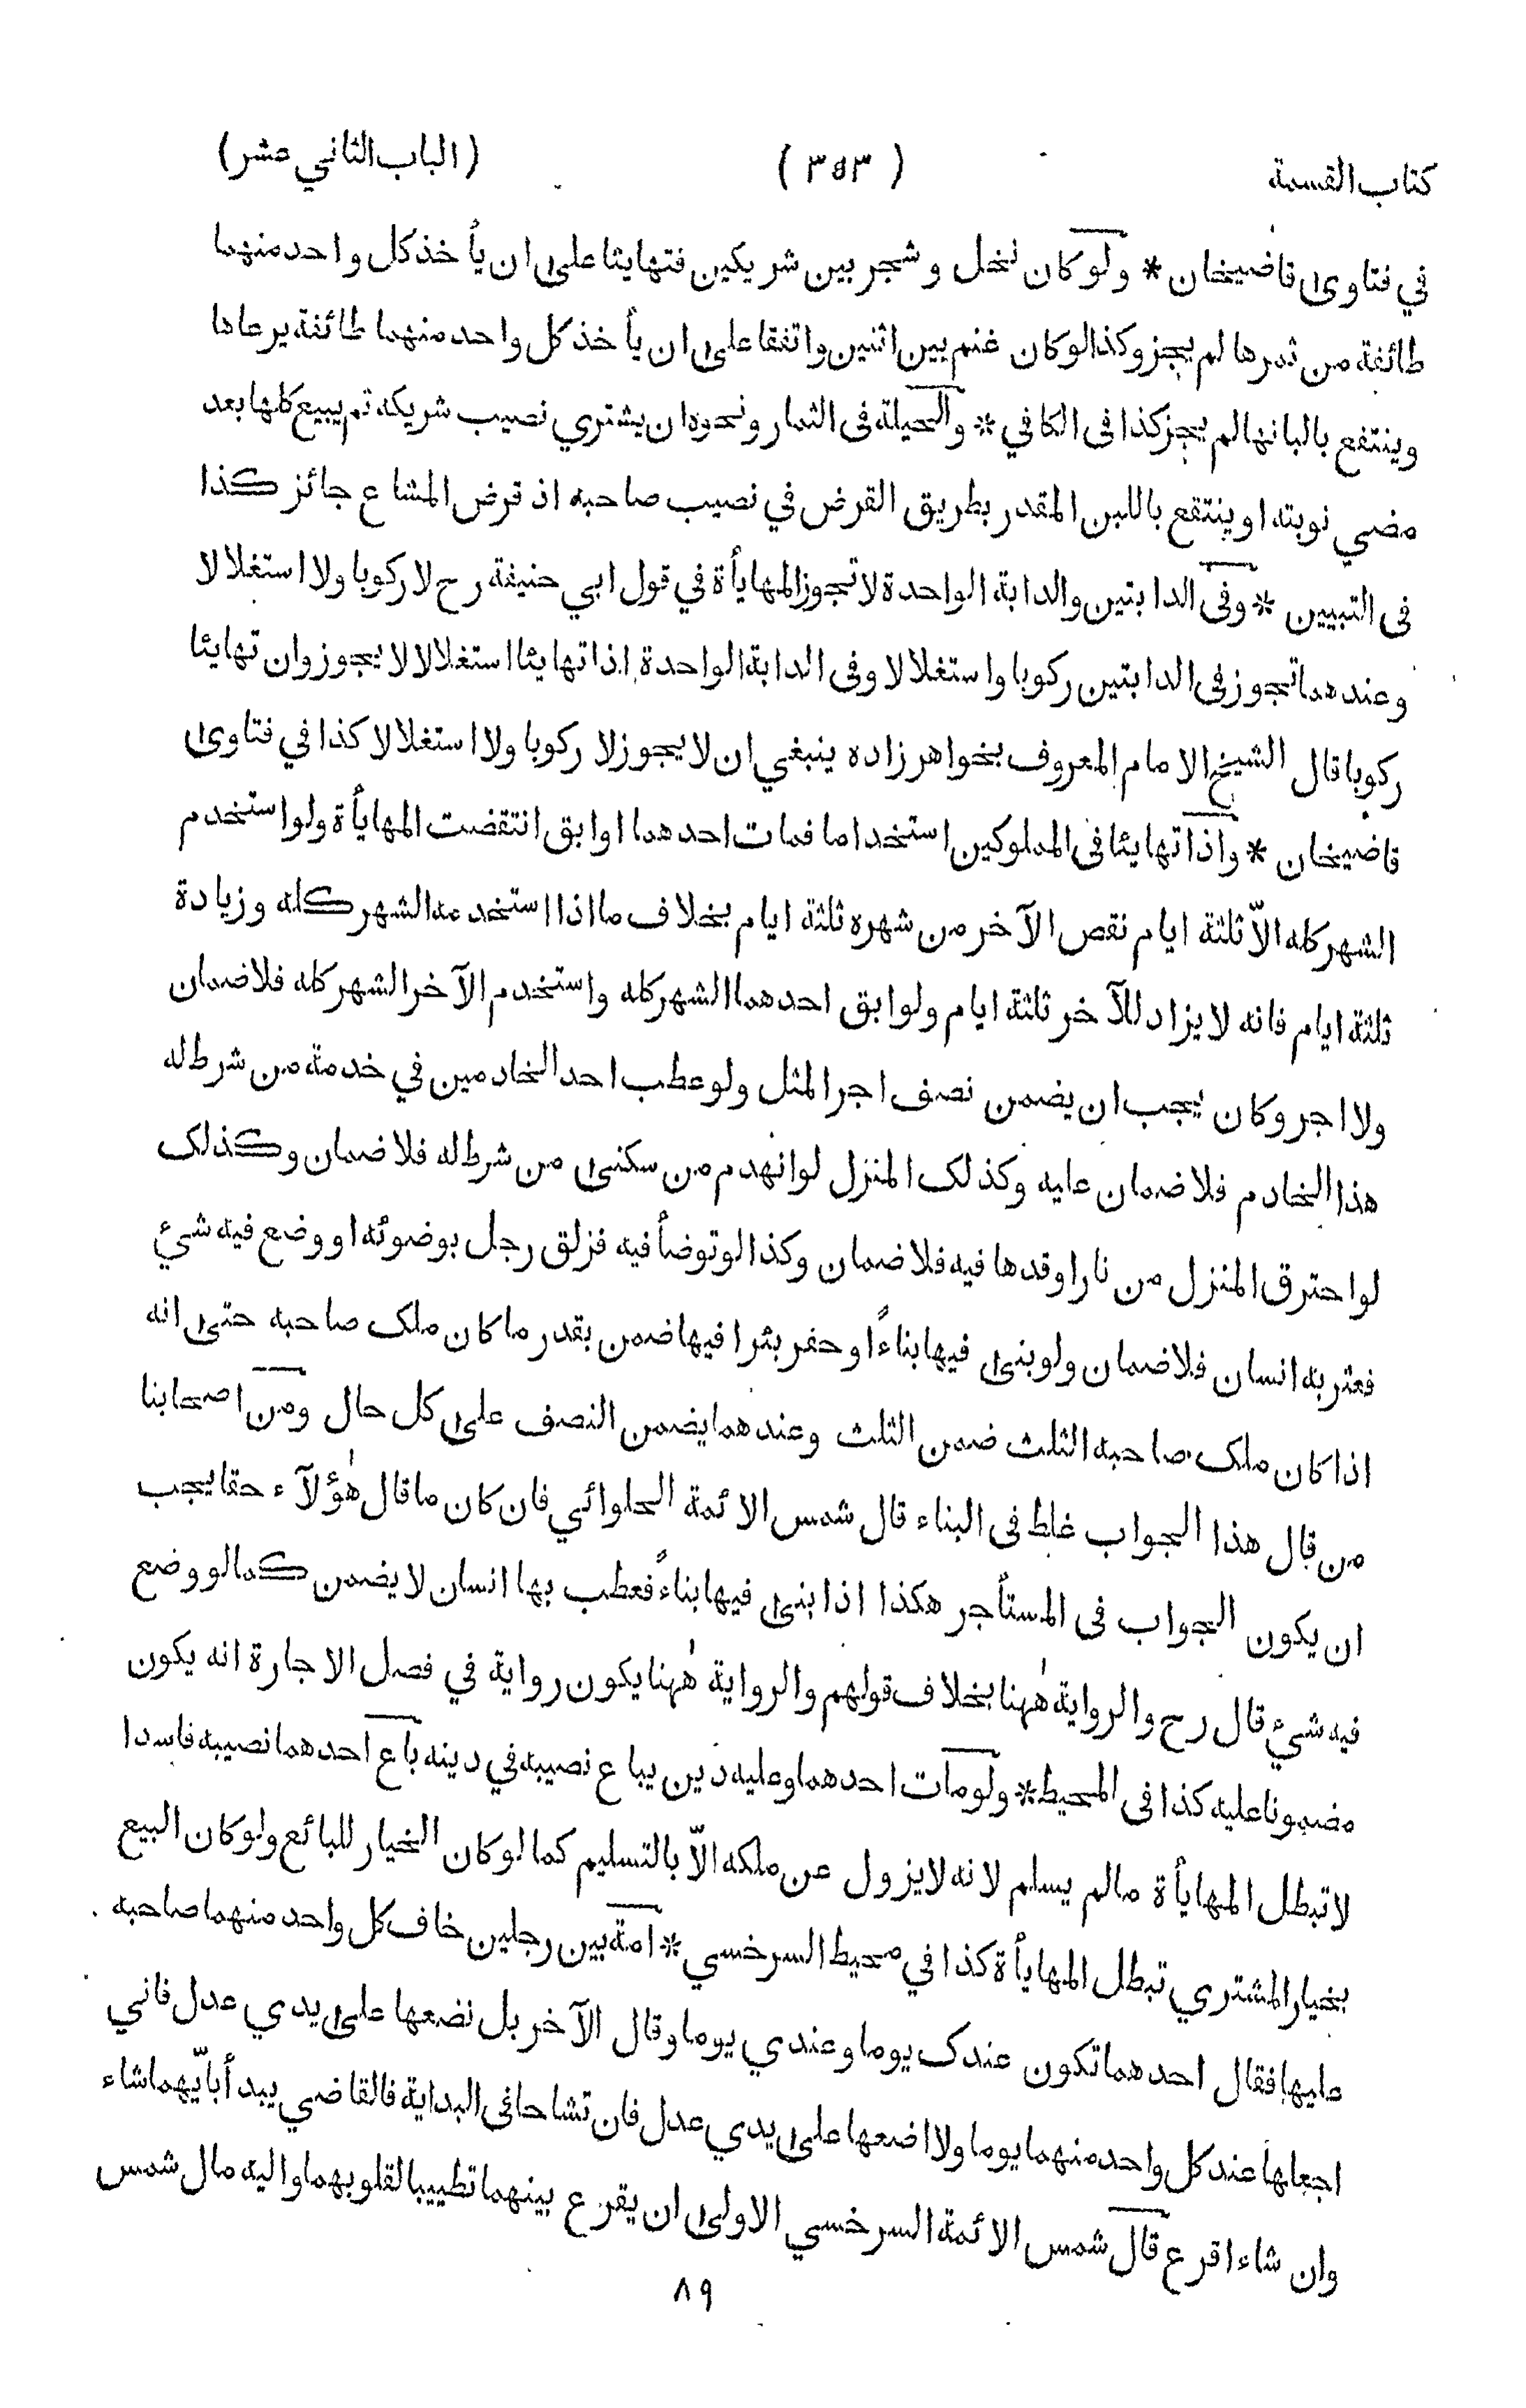 كتاب القسمة (٣٥٣) (الباب الثاني عشر)
في فتاوى قاضيخان * ولو كان نخل وشجر بين شريكين فتهايئا على ان يأخذ كل واحد منهما
طائفة من ثمرها لم يجز وكذا لو كان غنم بين اثنين واتفقا على ان يأخذ كل واحد منهما طائفة يرعاها
وينتفع بالبانها لم يجز كذا فى الكافي * والحيلة فى الثمار ونحوه ان يشتري نصيب شريكه ثم يبيع كلها بعد
مضي نوبته او ينتفع باللبن المقدر بطريق القرض في نصيب صاحبه اذ قرض المشاع جائز كذا
فى التبيين * وفى الدابتين والدابة الواحدة لا تجوز المهايأة في قول ابي حنيفة رح لا ركوبا ولا استغلالا
وعندهما تجوز فى الدابتين ركوبا واستغلالا وفى الدابة الواحدة اذا تهايئا استغلالا لا يجوز وان تهايئا
ركوبا قال الشيخ الامام المعروف بخواهر زاده ينبغي ان لا يجوز لا ركوبا ولا استغلالا كذا في فتاوى
قاضيخان * واذا تهايئا فى المملوكين استخداما فمات احدهما او ابق انتقضت المهايأة ولو استخدم
الشهر كله الّا ثلثة ايام نقص الآخر من شهره ثلثة ايام بخلاف ما اذا استخدمه الشهر كله وزيادة
ثلثة ايام فانه لا يزاد للآخر ثلثة ايام ولو ابق احدهما الشهر كله واستخدم الآخر الشهر كله فلا ضمان
ولا اجر وكان يجب ان يضمن نصف اجر المثل ولو عطب احد الخادمين في خدمة من شرط له
هذا الخادم فلا ضمان عليه وكذلك المنزل لو انهدم من سكنى من شرط له فلا ضمان وكذلك
لو احترق المنزل من نار اوقدها فيه فلا ضمان وكذا لو توضأ فيه فزلق رجل بوضوئه او وضع فيه شيئ
فعثر به انسان فلا ضمان ولو بنى فيها بناءً او حفر بئرا فيها ضمن بقدر ما كان ملك صاحبه حتى انه
اذا كان ملك صاحبه الثلث ضمن الثلث وعندهما يضمن النصف على كل حال ومن اصحابنا
من قال هذا الجواب غلط فى البناء قال شمس الائمة الحلوائي فان كان ما قال هٰؤلآء حقا يجب
ان يكون الجواب فى المستأجر هكذا اذا بنى فيها بناءً فعطب بها انسان لا يضمن كما لو وضع
فيه شيئ قال رح والرواية هٰهنا بخلاف قولهم والرواية هٰهنا يكون رواية في فصل الاجارة انه يكون
مضمونا عليه كذا فى المحيط * ولو مات احدهما وعليه دين يباع نصيبه في دينه باع احدهما نصيبه فاسدا
لا تبطل المهايأة مالم يسلم لانه لا يزول عن ملكه الّا بالتسليم كما لو كان الخيار للبائع ولو كان البيع
بخيار المشتري تبطل المهايأة كذا في محيط السرخسي * امة بين رجلين خاف كل واحد منهما صاحبه
عليها فقال احدهما تكون عندك يوما وعندي يوما وقال الآخر بل نضعها على يدي عدل فاني
اجعلها عند كل واحد منهما يوما ولا اضعها على يدي عدل فان تشاحا فى البداية فالقاضي يبدأ بايّهما شاء
وان شاء اقرع قال شمس الائمة السرخسي الاولى ان يقرع بينهما تطييبا لقلوبهما واليه مال شمس
٨٩